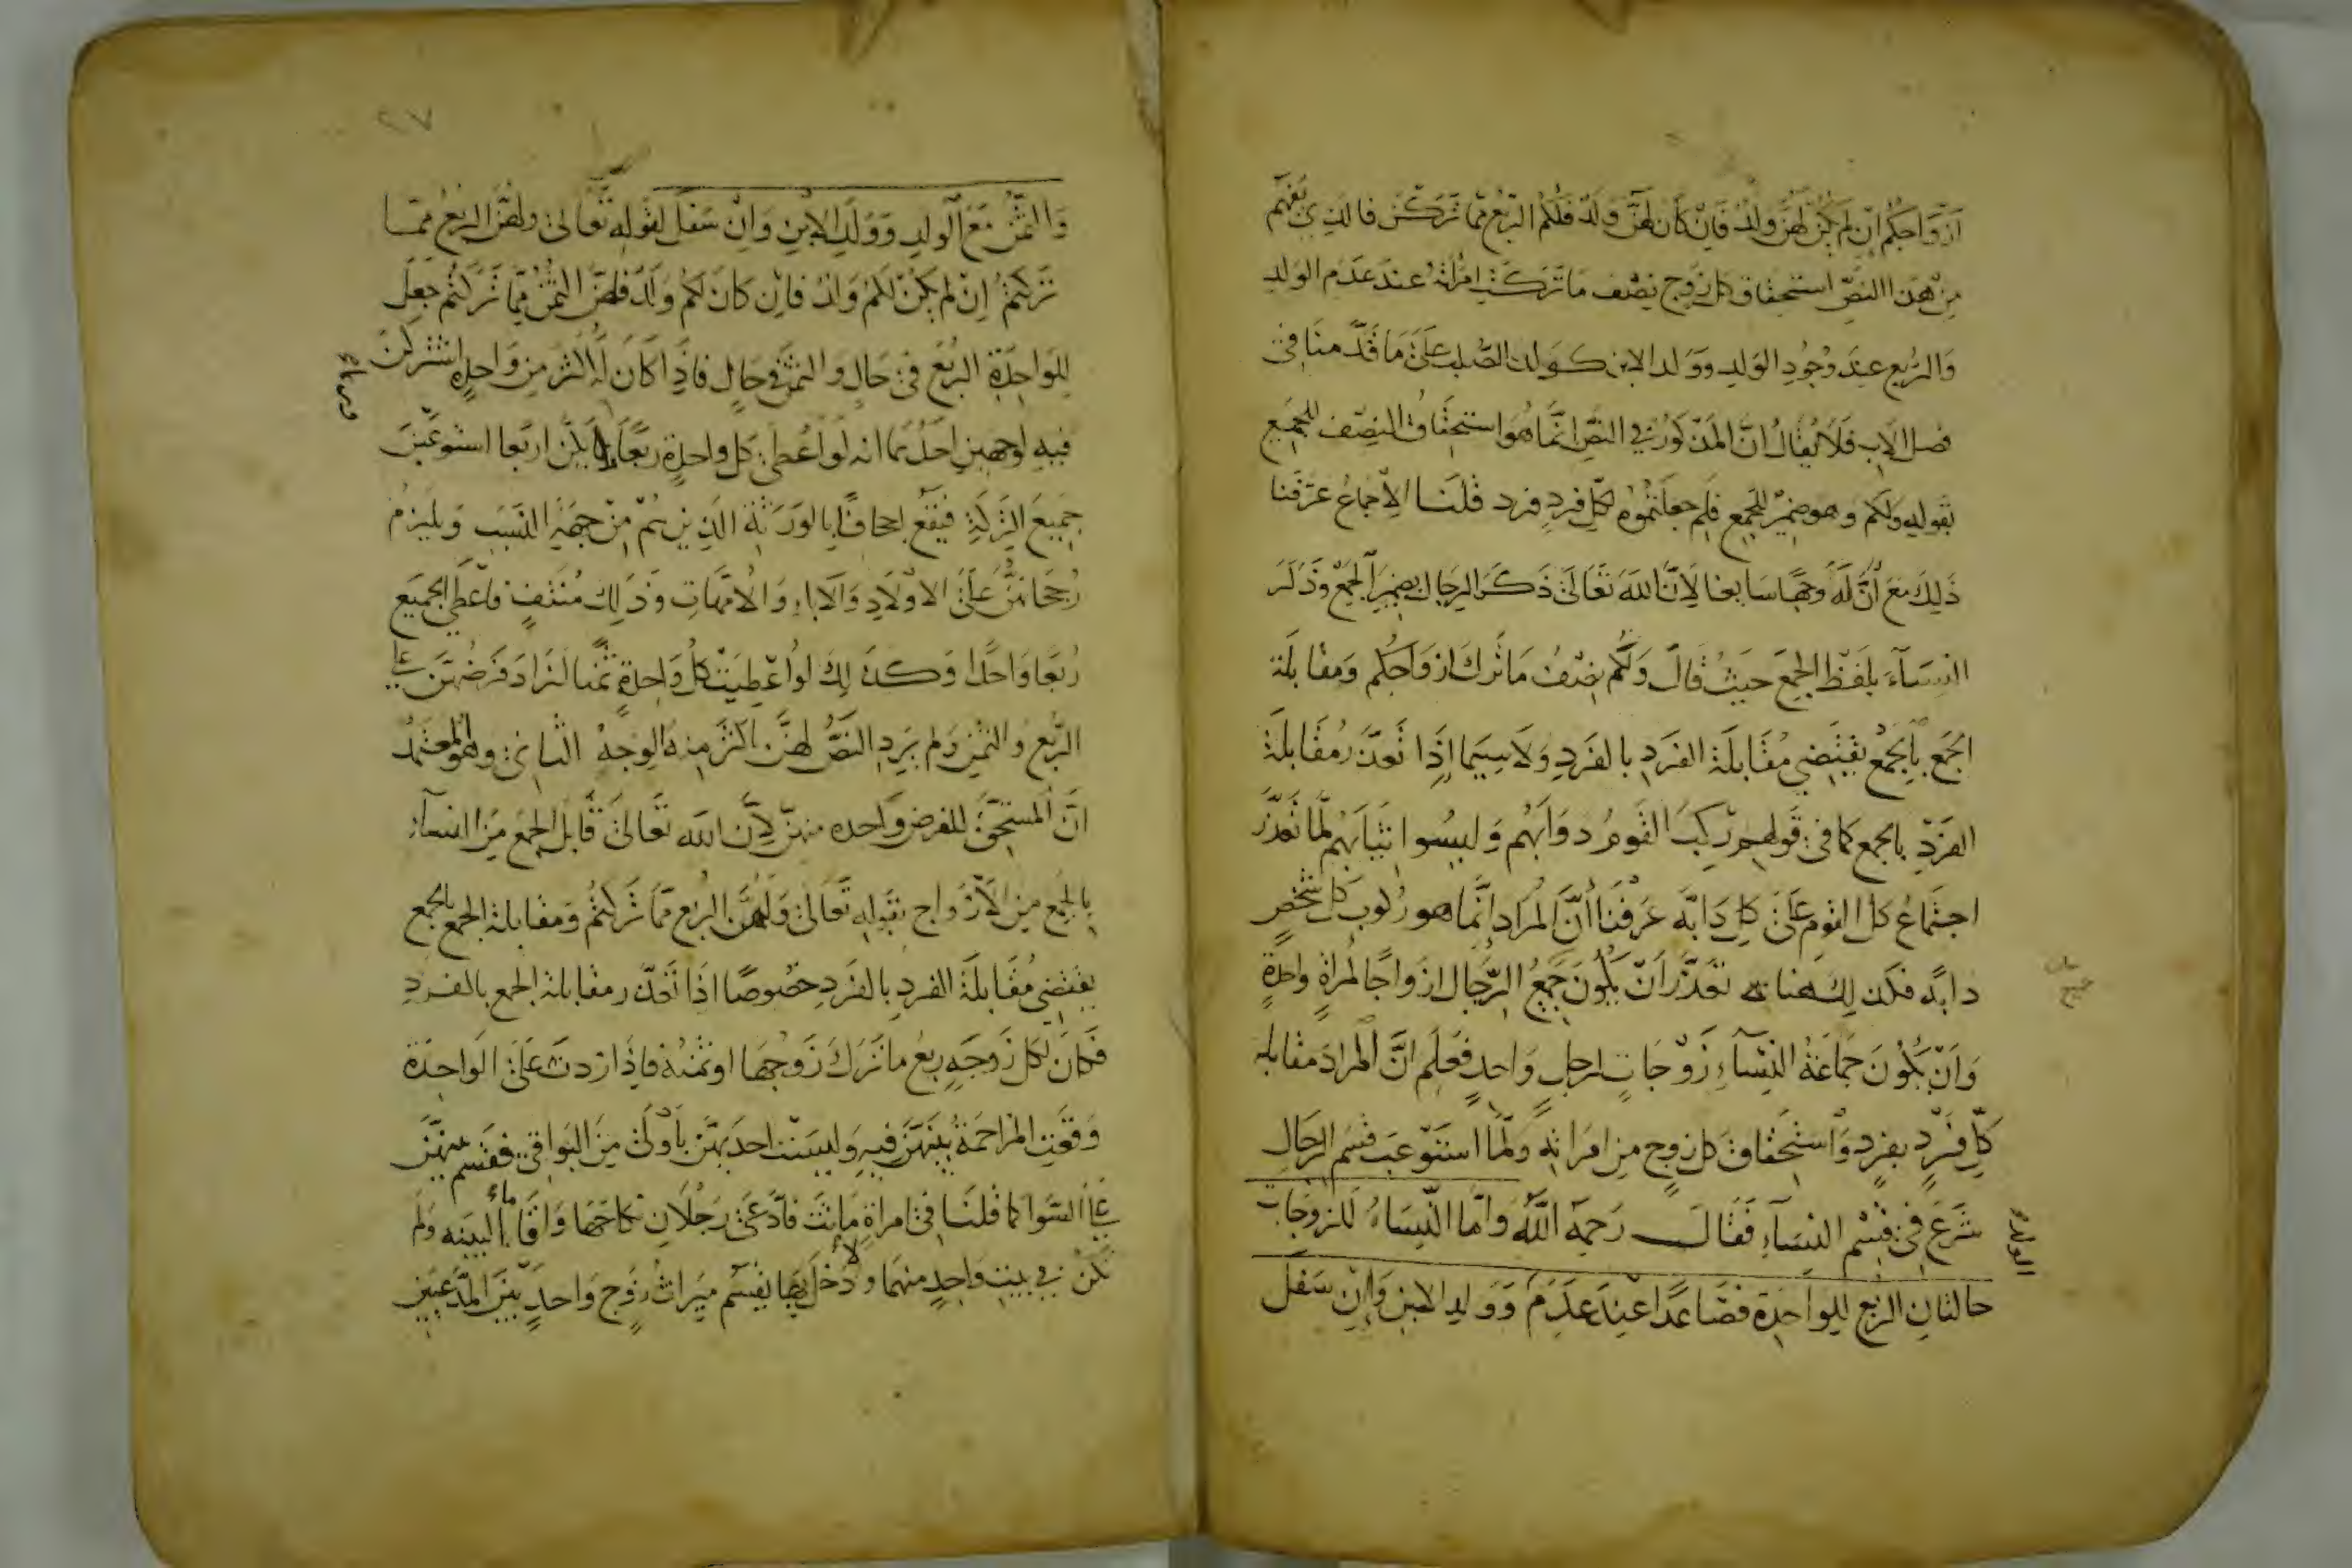 ازواجكم ان لم يكن لهن ولد فان كان لهن ولد فلكم الربع مما تركن فالذي يفهم
من هذا النص استحقاق كل زوج نصف ما تركت امراته عند عدم الولد
والربع عند وجود الولد وولد الابن كولد الصلب على ما قدمنا في
فصل الاب فلا يقال ان المذكور في النص انما هو استحقاق النصف للجميع
بقوله ولكم وهو ضمير للجمع فلم جعلتموه لكل فرد فرد قلنا الاجماع عرفنا
ذلك مع ان له وجها سابغا لان الله تعالى ذكر الرجال بضمير الجمع وذكر
النساء بلفظ الجمع حيث قال ولكم نصف ما ترك ازواجكم ومقابلة
الجمع بالجمع يقتضي مقابلة الفرد بالفرد ولا سيما اذا تعذر مقابلة
الفرد بالجمع كما في قولهم ركب القوم دوابهم ولبسوا ثيابهم لما تعذر
اجتماع كل القوم على كل دابة عرفنا ان المراد انما هو ركوب كل شخص
دابة فكذلك هنا تعذر ان يكون جميع الرجال ازواجا لمراة واحدة
وان يكون جماعة النساء زوجات لرجل واحد فعلم ان المراد مقابله
كل فرد بفرد واستحقاق كل زوج من امراته ولما استوعب قسم الرجال
شرع في قسم النساء فقال رحمه الله واما النساء للزوجات
حالتان الربع للواحدة فصاعدا عند عدم وولد الابن وان سفل
الولد
٢٧
والثمن مع الولد وولد الابن وان سفل لقوله تعالى ولهن الربع مما
تركتم ان لم يكن لكم ولد فان كان لكم ولد فلهن الثمن مما تركتم جعل
للواحدة الربع في حال والثمن في حال فاذا كان له اكثر من واحدة اشتركن
فيه لوجهين احدهما انه لو اعطي كل واحدة ربعا يكن اربعا استوعبن
جميع التركة فيقع اجحافا بالورثة الذين هم من جهة النسب ويلزم
رجحانهن على الاولاد والاباء والامهات وذلك منتف فاعطي الجميع
ربعا واحدا وكذلك لو اعطيت كل واحدة ثمنا لزاد فرضهن على
الربع والثمن ولم يرد النص لهن باكثر منه الوجه الثاني وهو المعتمد
ان المستحق للفرض واحده منهن لان الله تعالى قابل الجمع من النساء
بالجمع من الازواج بقوله تعالى ولهن الربع مما تركتم ومقابلة الجمع بالجمع
يقتضي مقابلة الفرد بالفرد خصوصا اذا تعذر مقابلة الجمع بالفرد
فكان لكل زوجه ربع ما ترك زوجها او ثمنه فاذا زدن على الواحدة
وقعت المزاحمة بينهن فيه وليست احديهن باولى من البواقي فقسم بينهن
على السوا كما قلنا في امراة ماتت فادعى رجلان نكاحها واقاما البينه ولم
تكن في بيت واحد منهما ولا دخل بها يقسم ميراث زوج واحد بين المدعيين